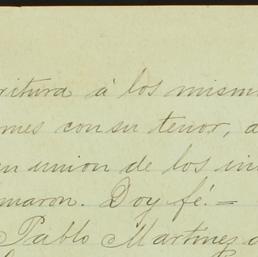 ritura á los mism
mes con su tenor, a
en union de los in
maron. Doy fé. =
Pablo Martinez